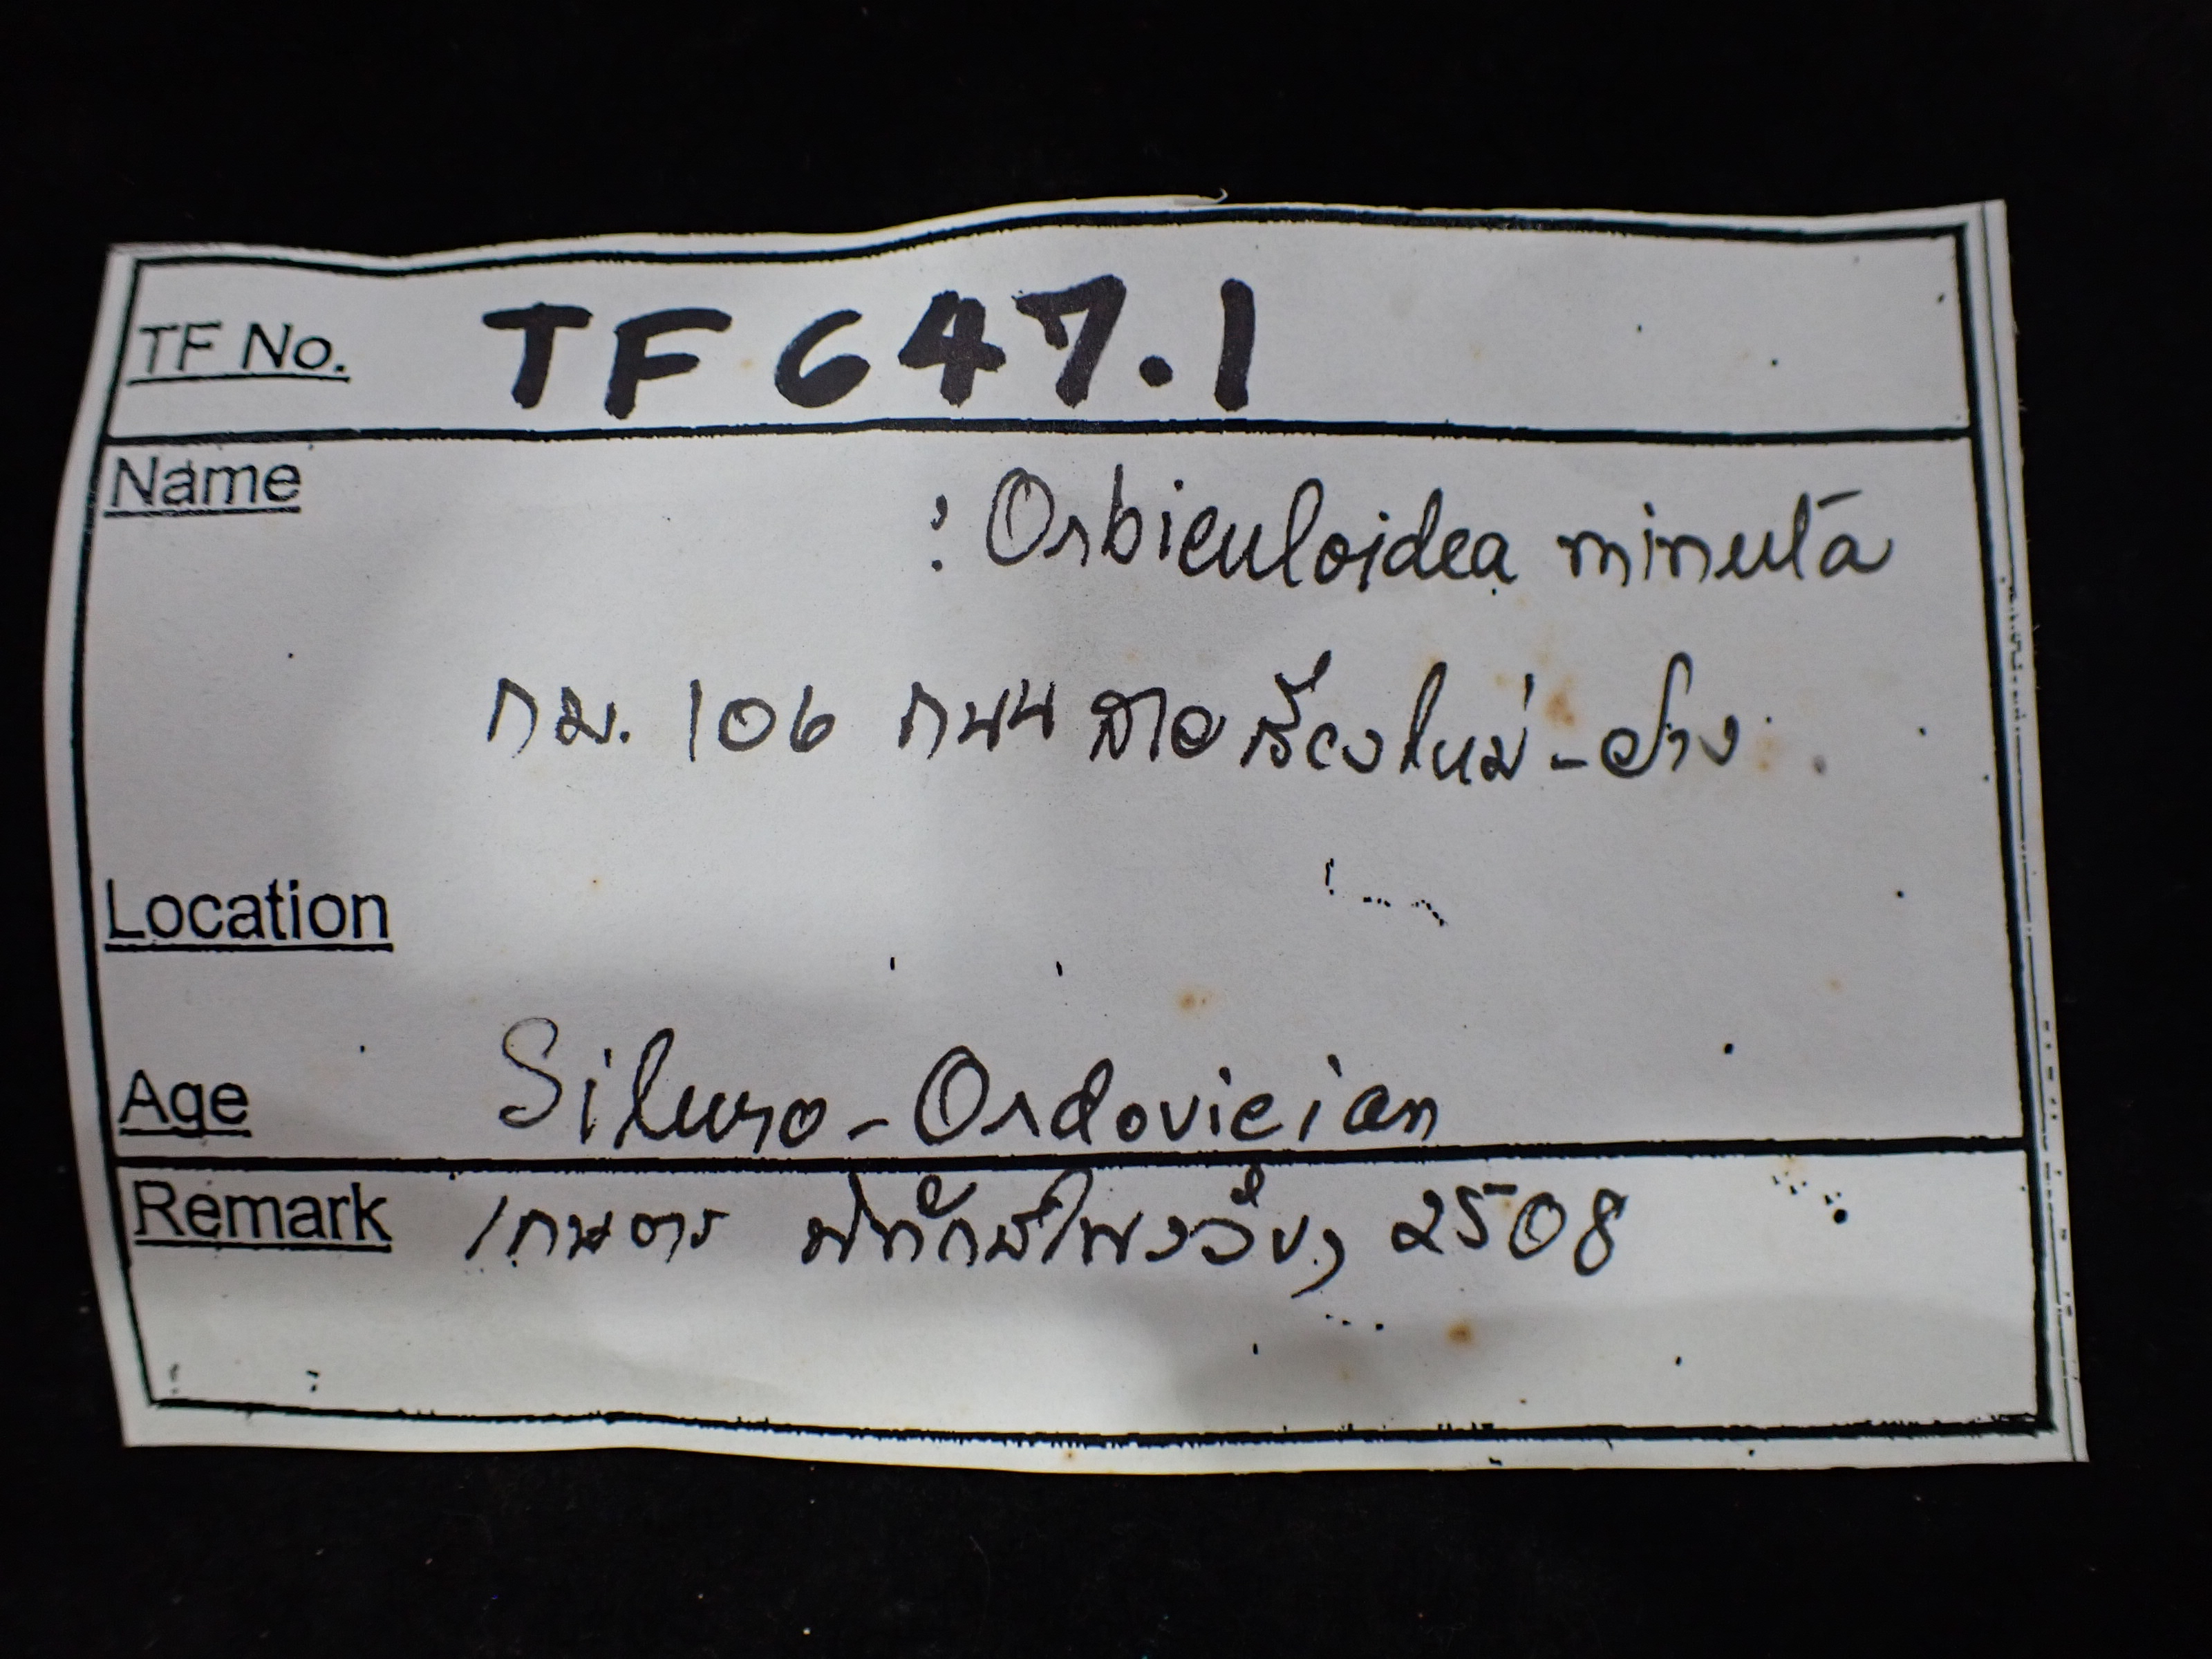 TF No. TF 647.1
Name : Orbiculoidea minuta
กม. 106 ถนนสายเชียงใหม่-ฝาง
Location
Age Siluro-Ordovician
Remark เกษตร พิทักษ์ไพรวัน, 2508